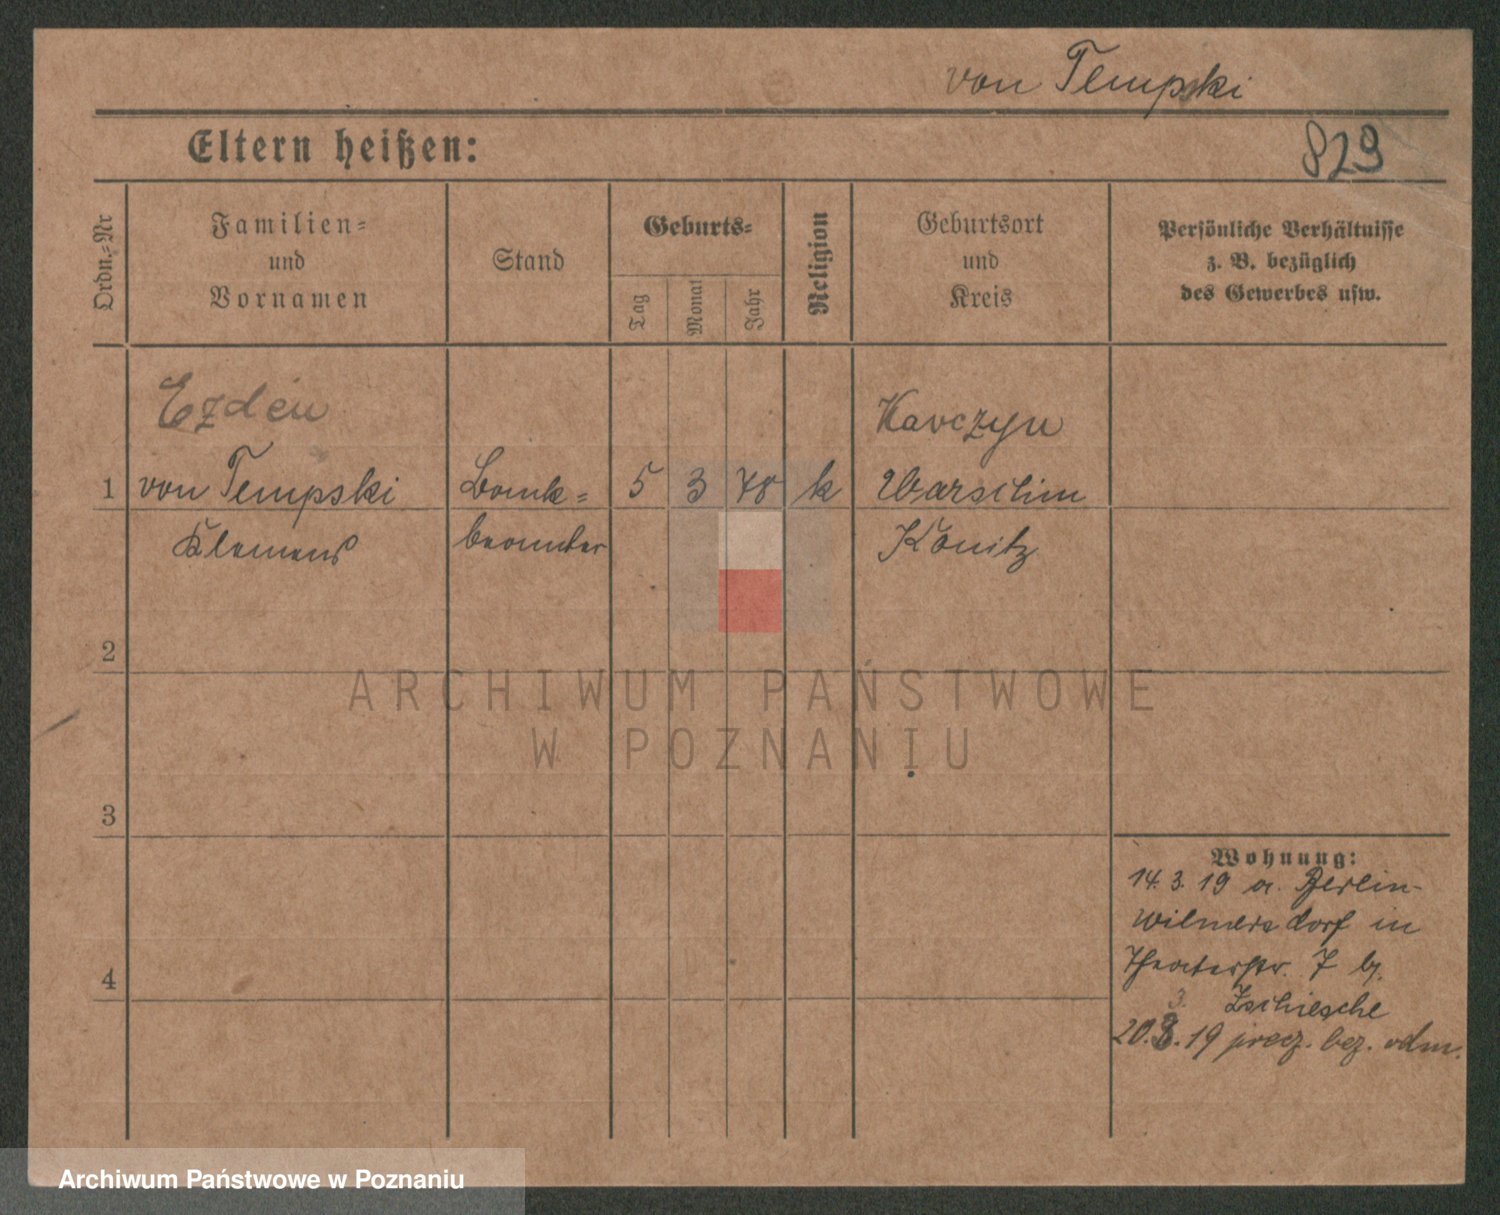 von Tempski
Eltern heißen:
829
Ordn.-Nr
Familien-
und
Vornamen
Stand
Geburts-
Tag
Monat
Jahr
Religion
Geburtsort
und
Kreis
Persönliche Verhältnisse
z. B. bezüglich
des Gewerbes usw.
Karczyn
1 von Tempski Bank- 5 3 78 k
Klemens beamter Konitz
2
3
4
Wohnung:
14. 3. 19 a. Berlin-
Wilmersdorf in
Theaterstr. 7 b.
3. Zschiesche
20.8.19 bez.
ARCHIWUM PAŃSTWOWE
W POZNANIU
Archiwum Państwowe w Poznaniu